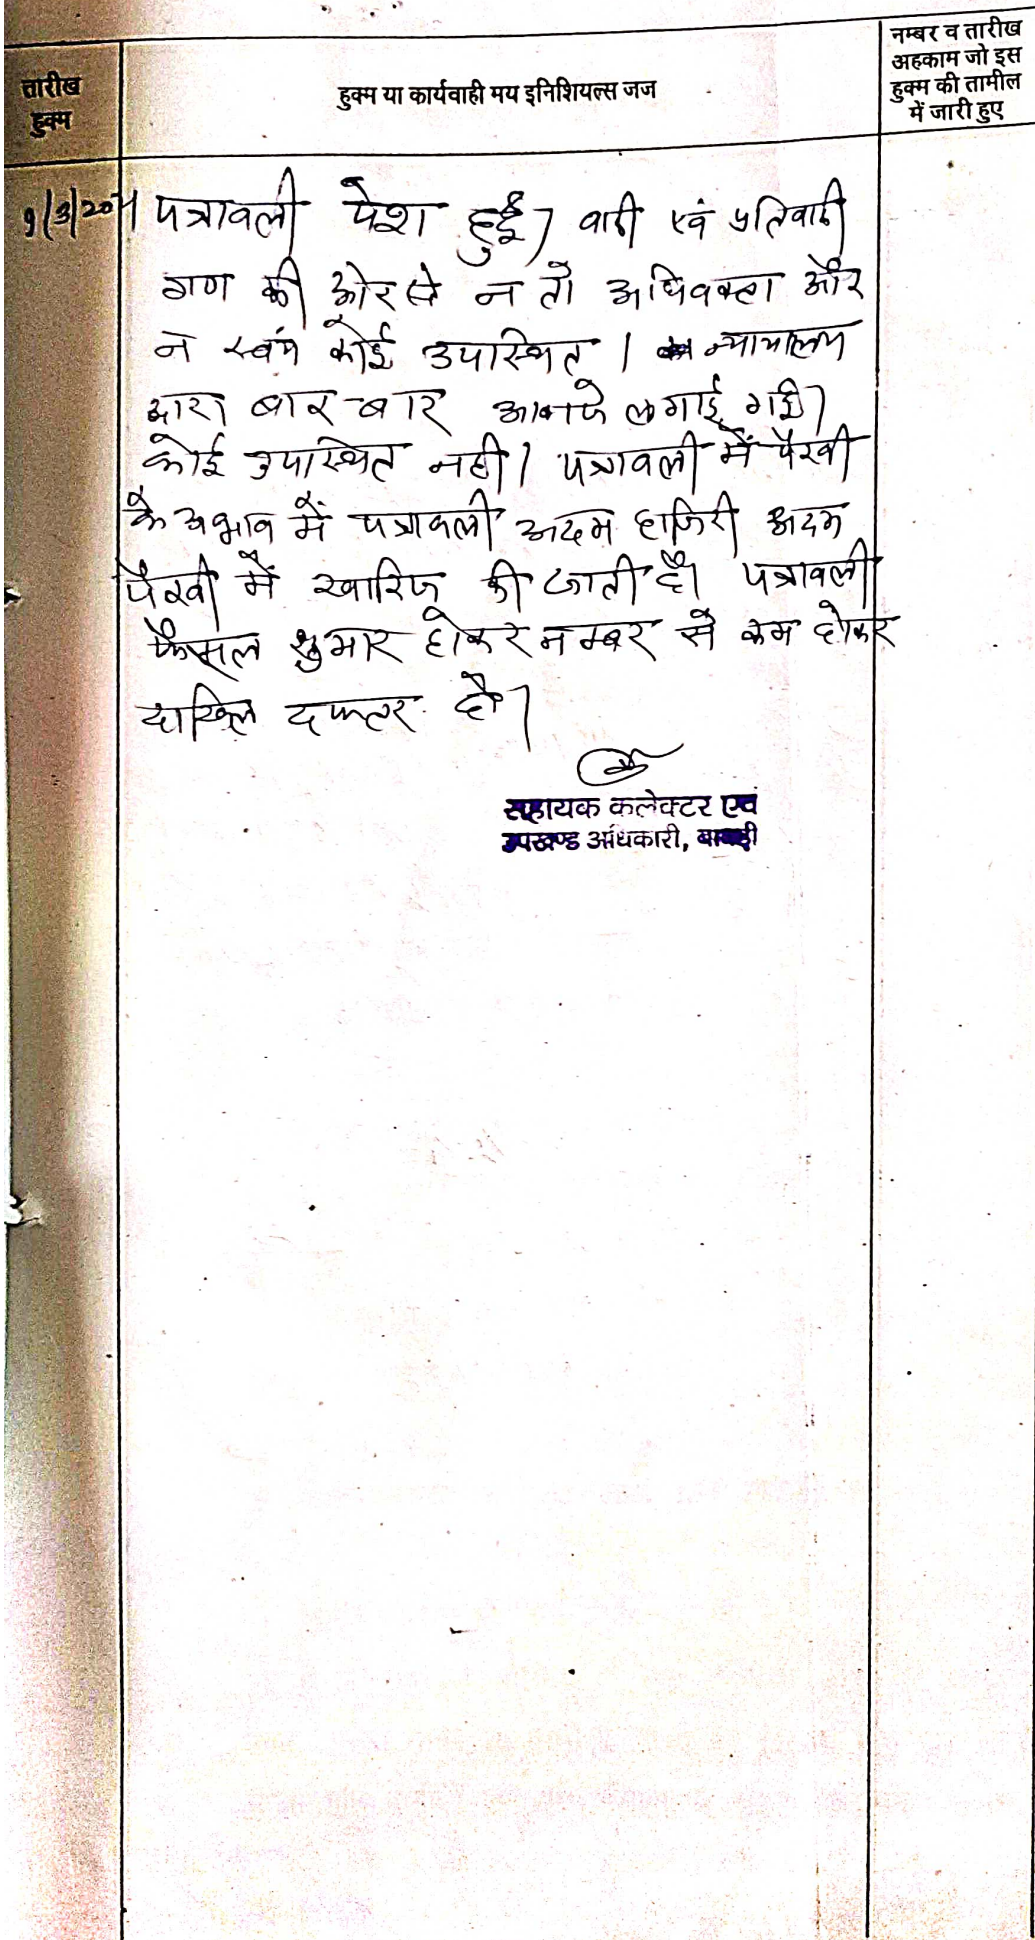 तारीख
हुक्म
हुक्म या कार्यवाही मय इनिशियल्स जज
नम्बर व तारीख
अहकाम जो इस
हुक्म की तामील
में जारी हुए
पत्रावली पेश हुई। वादी एवं प्रतिवादी
गण की ओर से न तो अधिवक्ता और
न स्वंय कोई उपास्थित । न्यायालय
द्वारा बार-बार आवाजे लगाई गयी।
कोई उपास्थित नही। पत्रावली में पैरवी
के अभाव में पत्रावली अदम हाजिरी अदम
पैरवी में खारिज की जाती है। पत्रावली
फैसल शुमार होकर नम्बर से कम होकर
दाखिल दफ्तर हो।
सहायक कलेक्टर एवं
उपखण्ड अधिकारी,